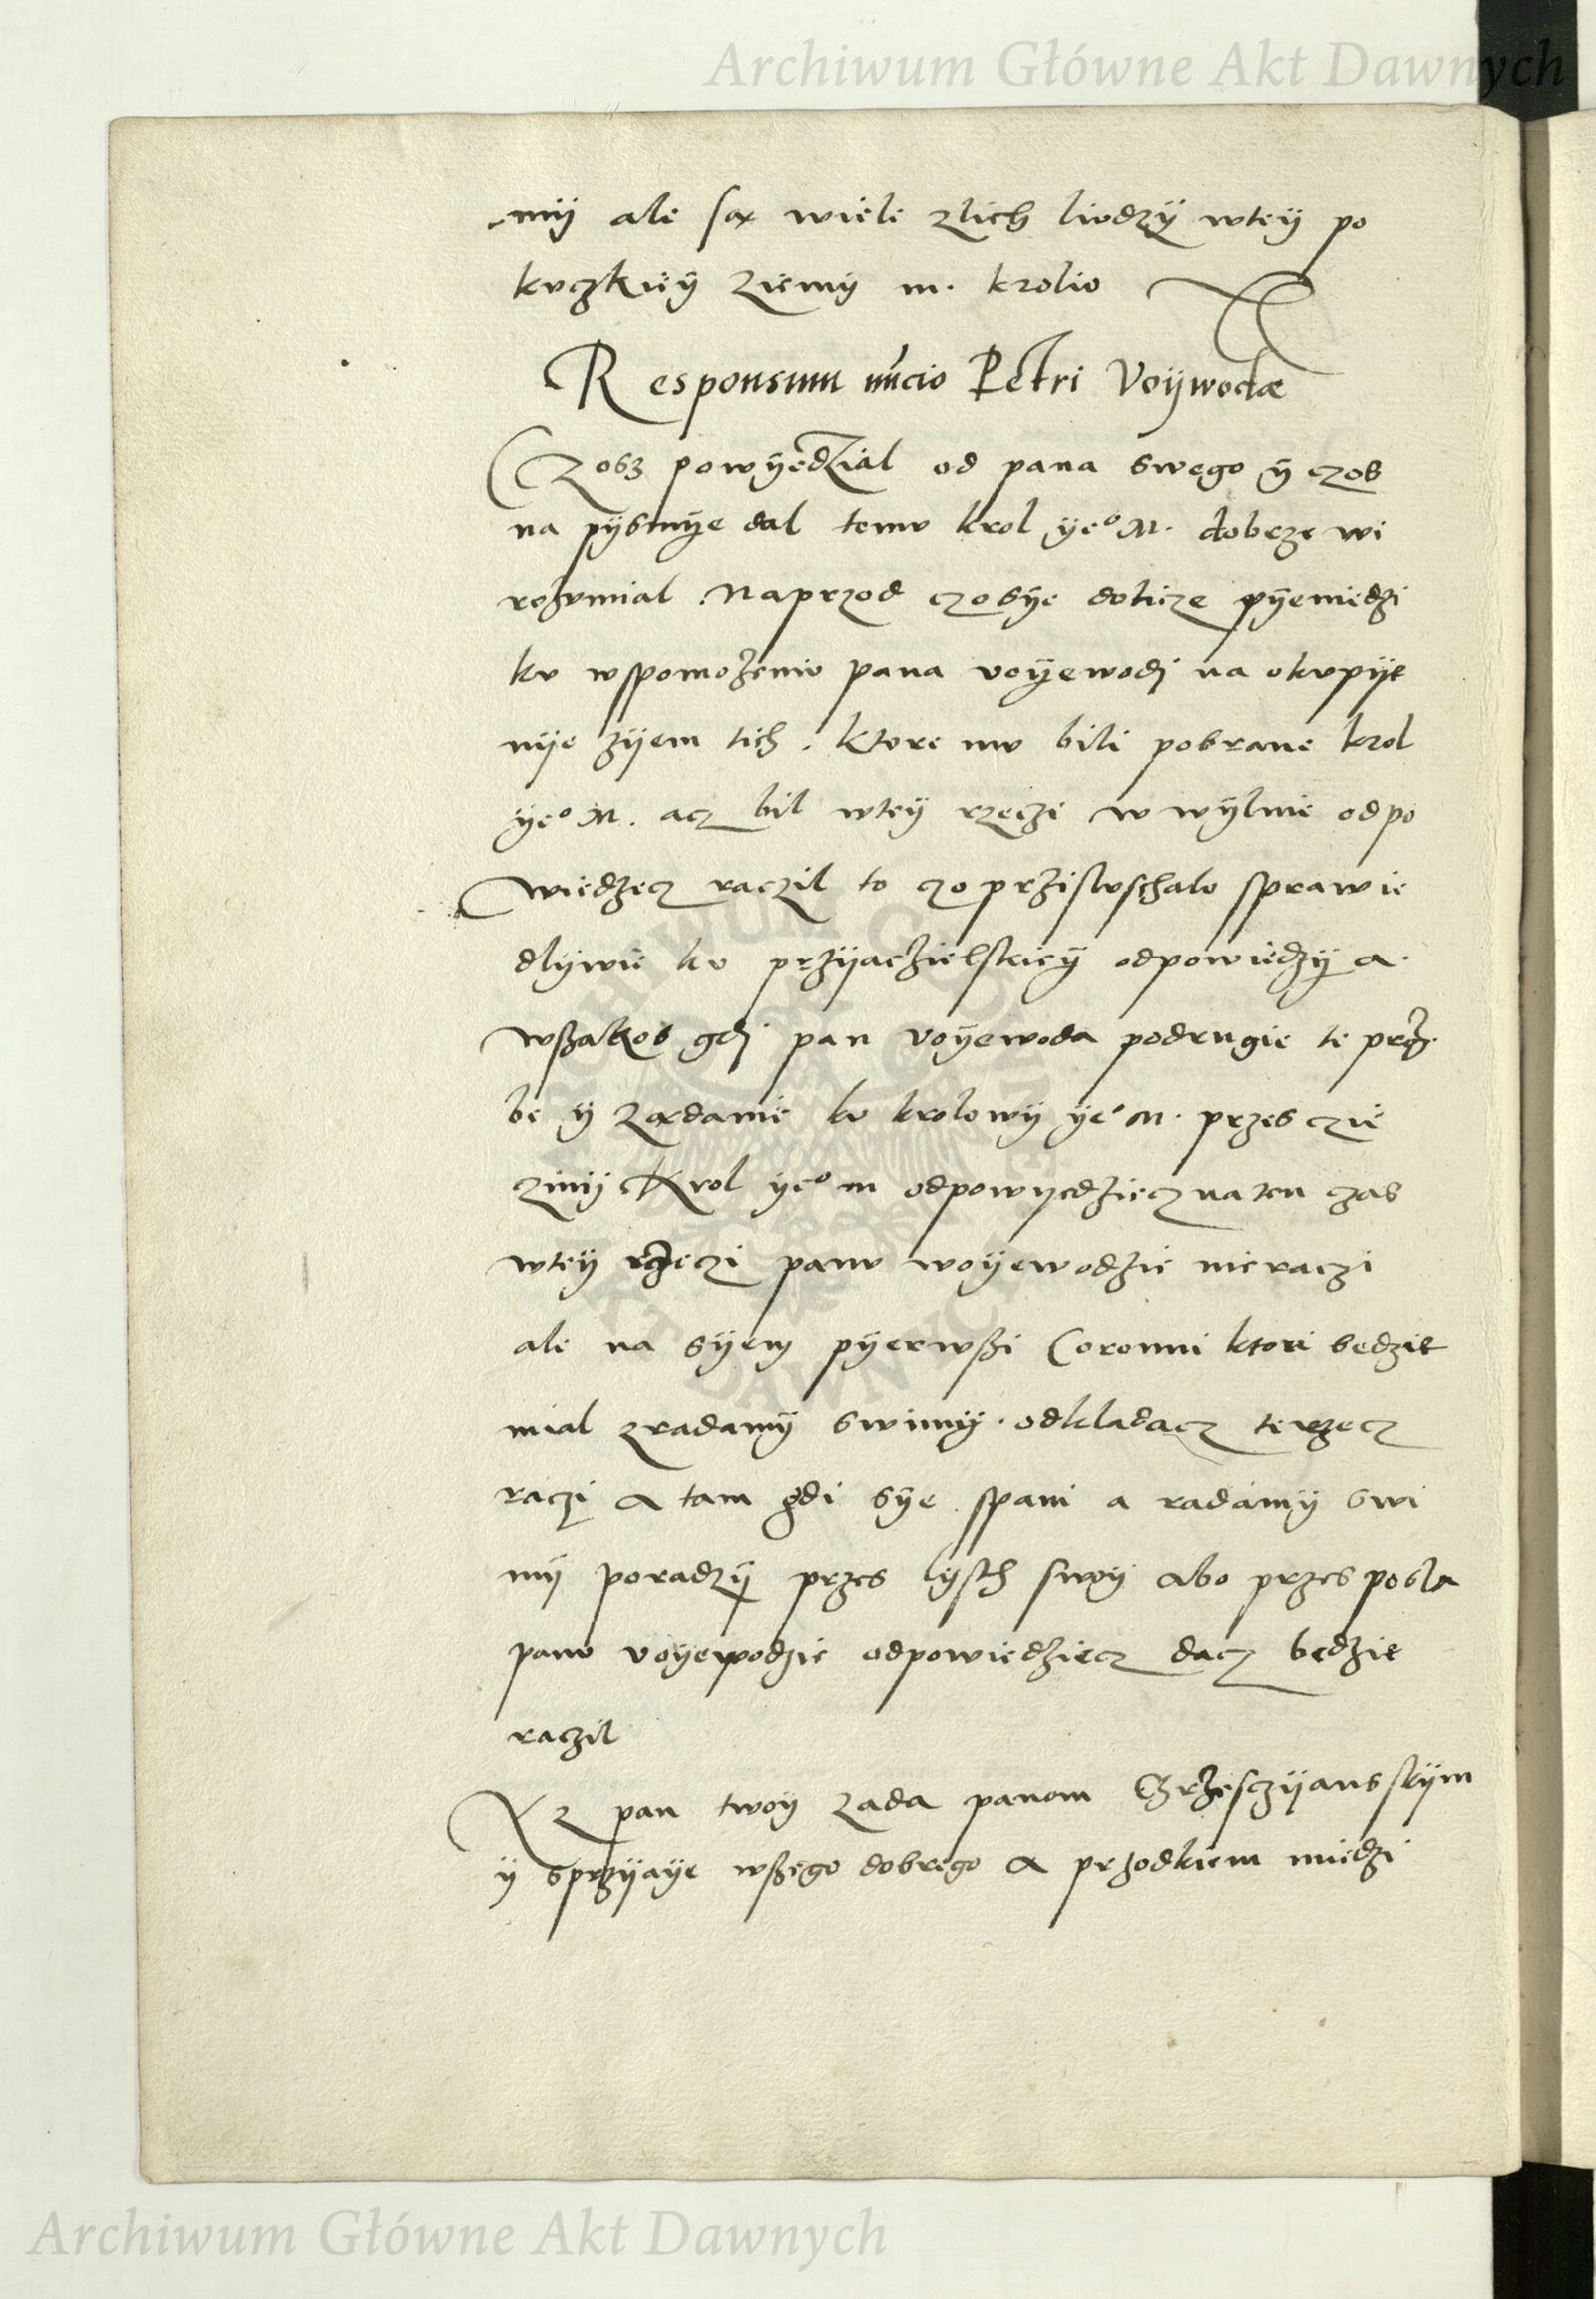 Archiwum Główne Akt Dawnych
my ale są wiele zlich liudzy wtey po
kuczkiey ziemy m. kroliu
Responsum nuncio Petri Voywodæ
Czosz powyedzial od pana swego y czos
na pysmye dal temu krol ye° M. dobrze wi
rozumial. Naprzod czosye doticze pyeniedzi
ku wspomozeniu pana voyewodj na okupye
nye zyem tich. ktore mu bili pobrane krol
ye° M. acz bil wtey rzeczi w wylnie odpo
wiedzecz raczil to czo przisluschalo sprawie
dlywie ku przyaczielskiey odpowiedzy a.
wßakos gdj pan voyewoda podrugie te proz
be y ządanie ku krolowy ye° M. przes czie
ziny Krol ye° m odpowyedziecz na ten czas
wtey rzeczi panu woyewodzie nie raczi
ale na syem pyerwßi Coronni ktori bedzie
mial zradamy swimy. odkladacz te rzecz
raczi a tam gdi sye spani a radamy swi
my poradzy przes lysth swoy abo przes posla
panu voyewodzie odpowiedziecz dacz bedzie
raczil
Yz pan twoy zada panom Chrzesczyansskym
y sprzyaye wßego dobrego a przodkiem miedzi
Archiwum Główne Akt Dawnych